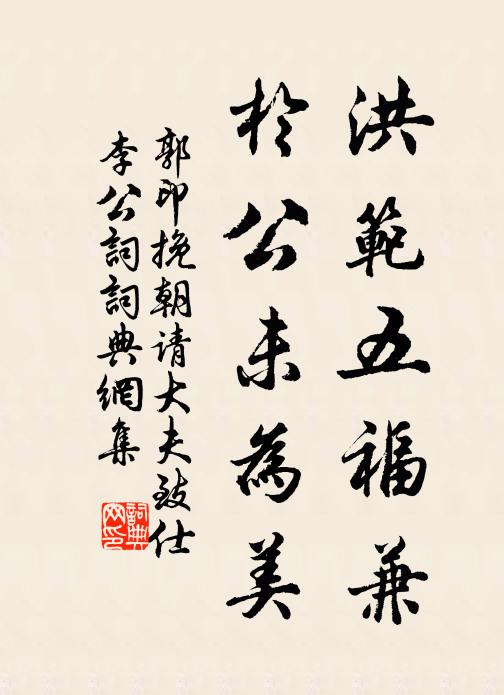 洪範五福兼
於公未為美
郭印挽朝请大夫致仕
李公詞詞典網集
詞典网印